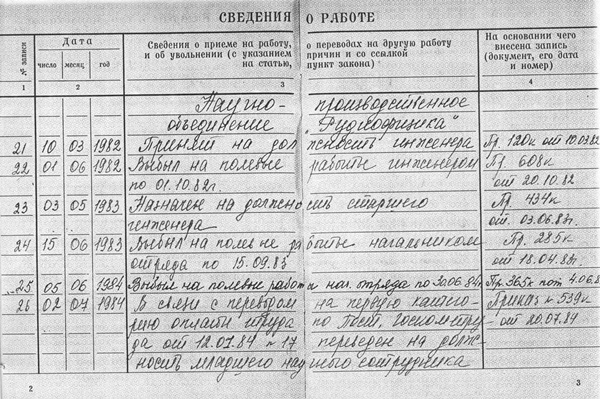 СВЕДЕНИЯ О РАБОТЕ
№ записи
Дата
число месяц год
Сведения о приеме на работу, о переводах на другую работу
и об увольнении (с указанием причин и со ссылкой
на статью, пункт закона)
На основании чего
внесена запись
(документ, его дата
и номер)
1 2 3 4
Научно- производственное
объединение "Рудгеофизика"
21 10 03 1982 Принят на должность инженера Пр. 120к от 10.03.82
22 01 06 1982 Выбыл на полевые работы инженером Пр. 608к
по 01.10.82г. от 20.10.82
23 03 05 1983 Назначен на должность старшего Пр. 434к
инженера от 03.06.83г.
24 15 06 1983 Выбыл на полевые работы начальником Пр. 285к
отряда по 15.09.83 от 18.04.83г.
25 05 06 1984 Выбыл на полевые работы нач. отряда по 30.06.84 Пр. 365к от 4.06.84
26 02 07 1984 В связи с переводом на Приказ к 539к
рию оплаты труда по Пост. - от 20.07.84
да от 12.07.84 № 17 переведен на долж
ность младшего научного сотрудника
2 3